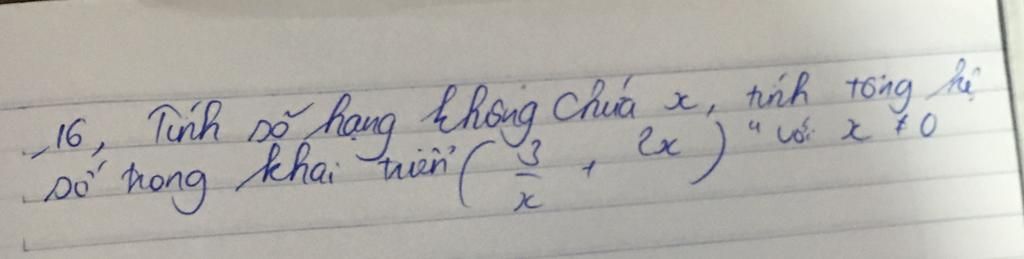 16, Tính số hạng không chứa x, tính tổng hệ
số trong khai triển (3/x + 2x)⁴ với x ≠ 0